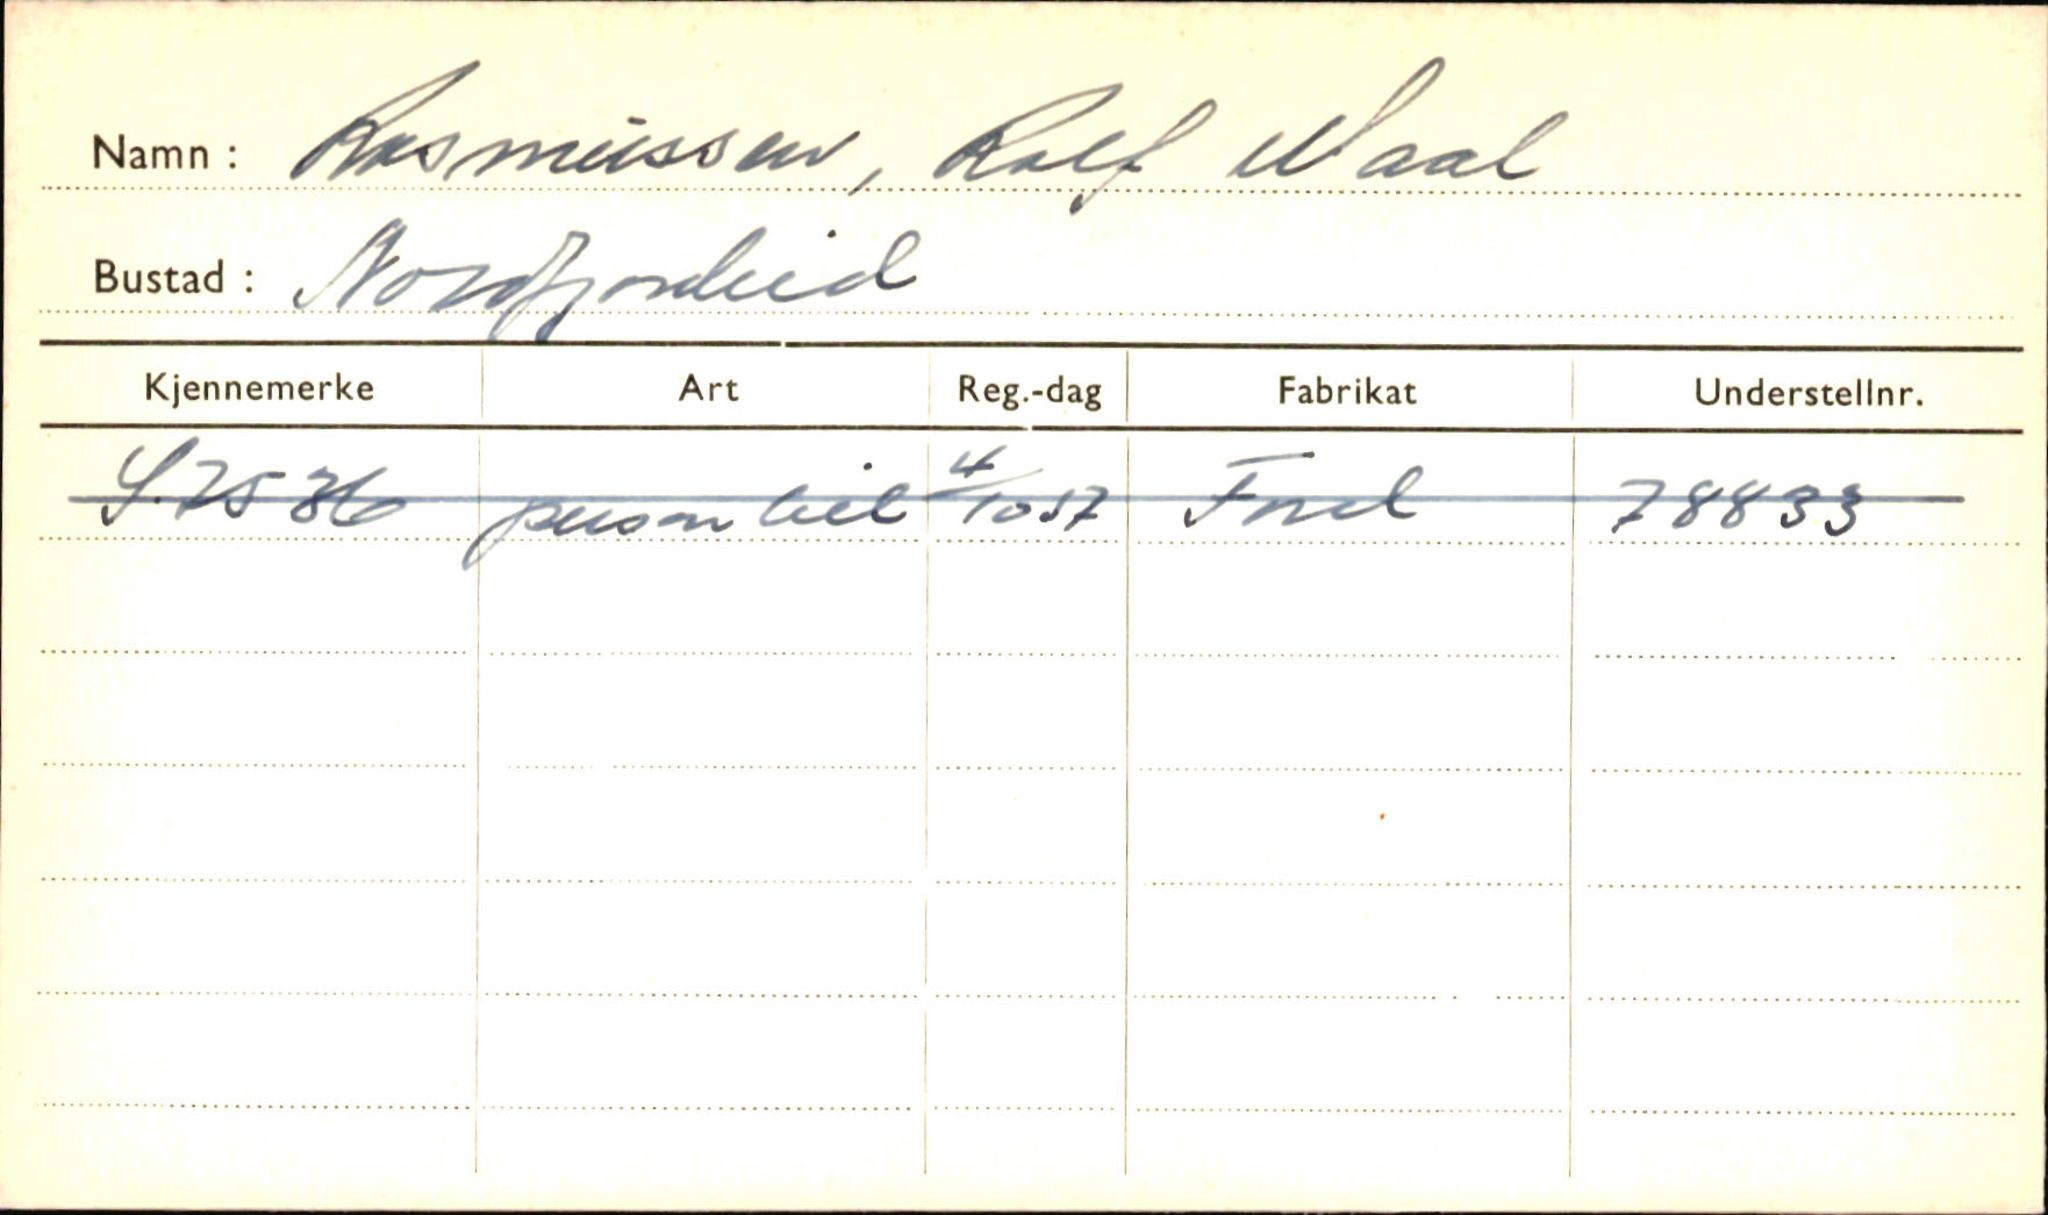 Namn : Rasmussen, Rolf Waal
Bustad : Nordfjordeid
Kjennemerke Art Reg.-dag Fabrikat Understellnr.
S.7536 personbil 4/10 57 Ford 78833